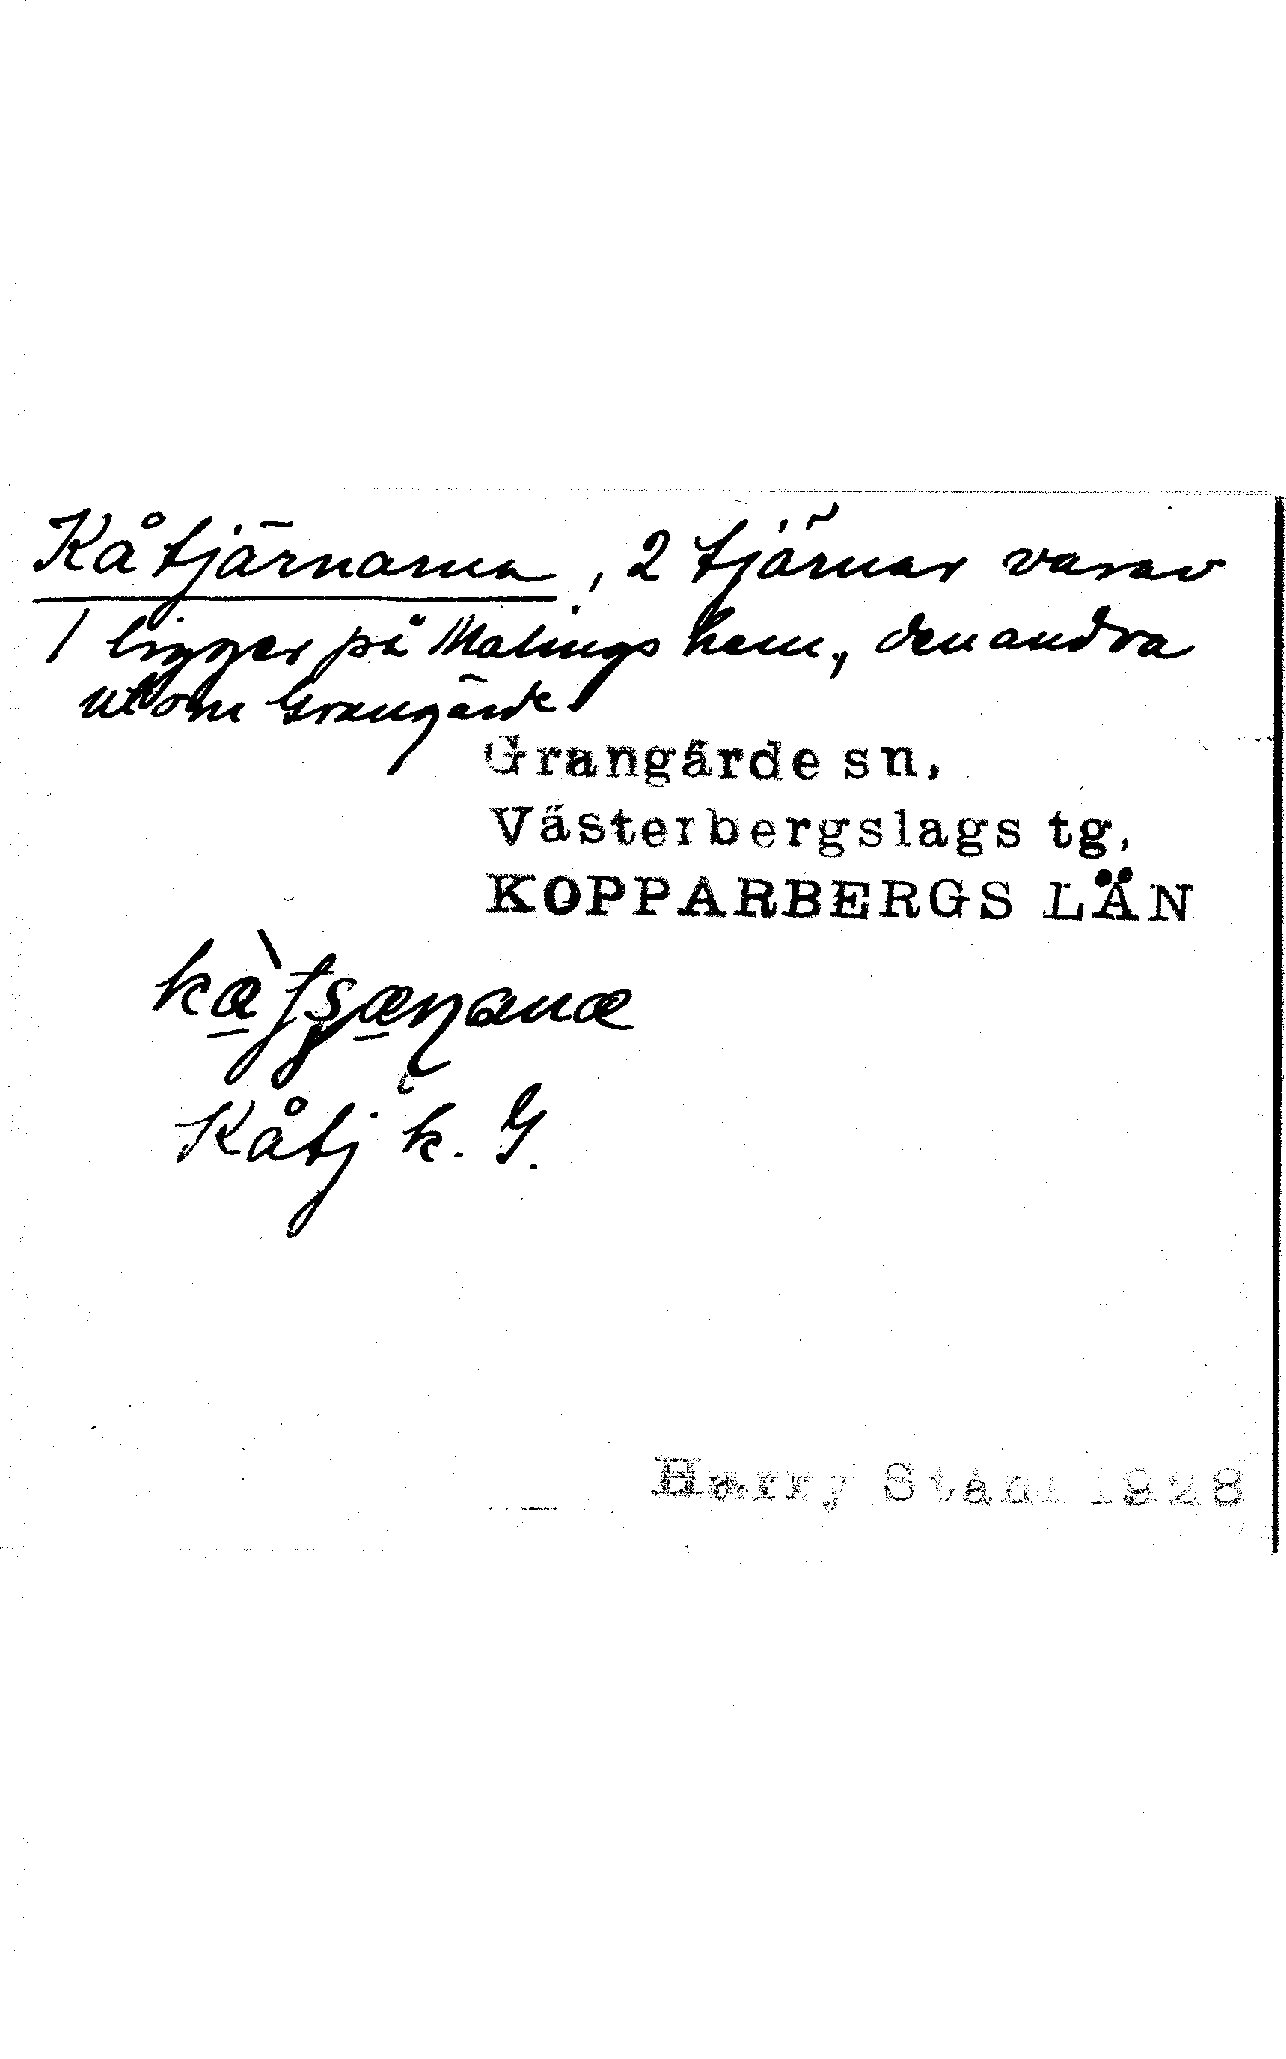 Kåtjärnarna, 2 tjärnar varav
1 ligger på Malings hem., den andra
utom Grangärde
Grangärde sn,
Västerbergslags tg,
KOPPARBERGS LÄN
Kåtj k. G.
Harry Ståhl 1928